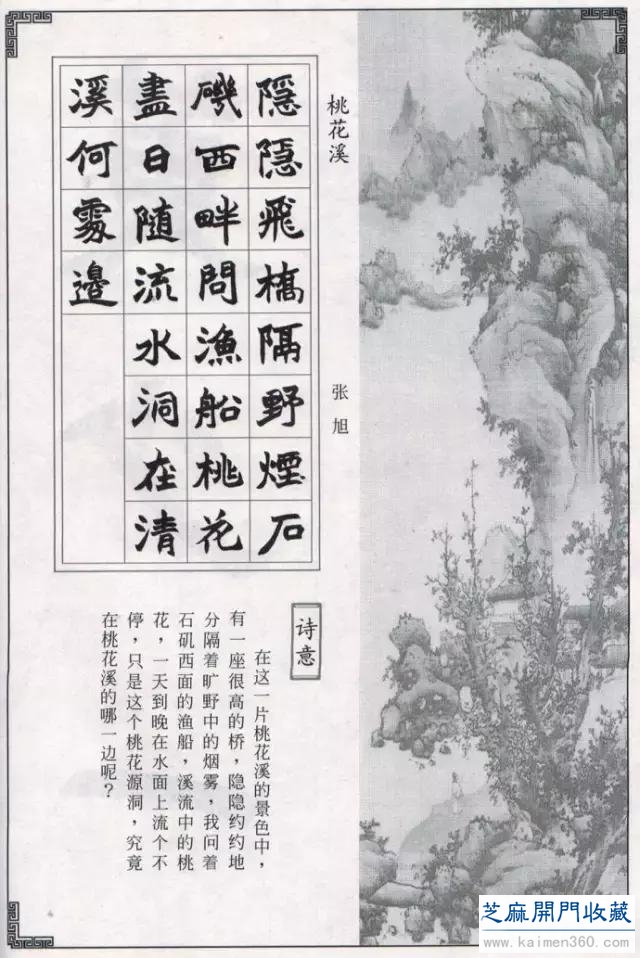 桃花溪
张旭
隱隱飛橋隔野煙石
磯西畔問漁船桃花
盡日隨流水洞在清
溪何處邊
诗意
在这一片桃花溪的景色中，
有一座很高的桥，隐隐约约地
分隔着旷野中的烟雾，我问着
石矶西面的渔船，溪流中的桃
花，一天到晚在水面上流个不
停，只是这个桃花源洞，究竟
在桃花溪的哪一边呢？
芝麻開門收藏
www.kaimen360.com